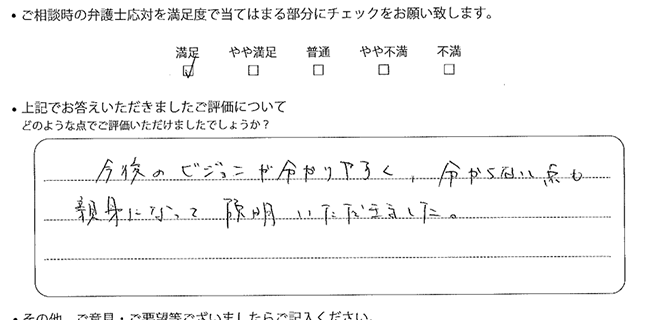 • ご相談時の弁護士応対を満足度で当てはまる部分にチェックをお願い致します。
満足 やや満足 普通 やや不満 不満
☑ □ □ □ □
• 上記でお答えいただきましたご評価について
どのような点でご評価いただけましたでしょうか？
今後のビジョンが分かりやすく、分からない点も
親身になって説明いただきました。
• その他、ご意見・ご要望等ございましたらご記入ください。